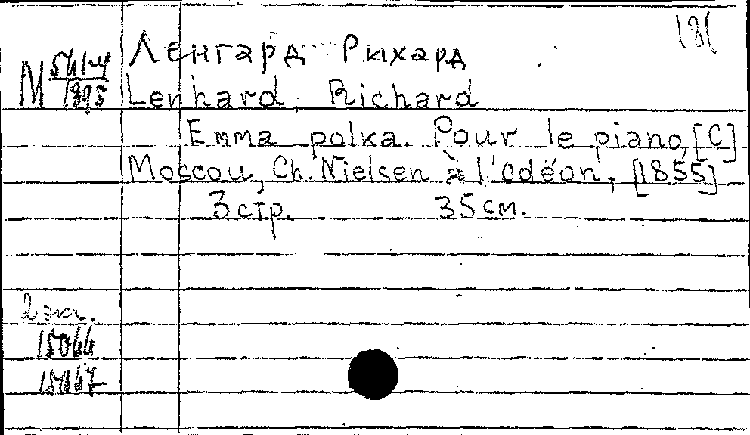 Ленгард Рихард
Lenhard, Richard
Emma polka. Pour le piano, [C]
Moscou, Ch. Nielsen à l'Odéon, [1855]
3 стр. 35 см.
2 экз.
15066